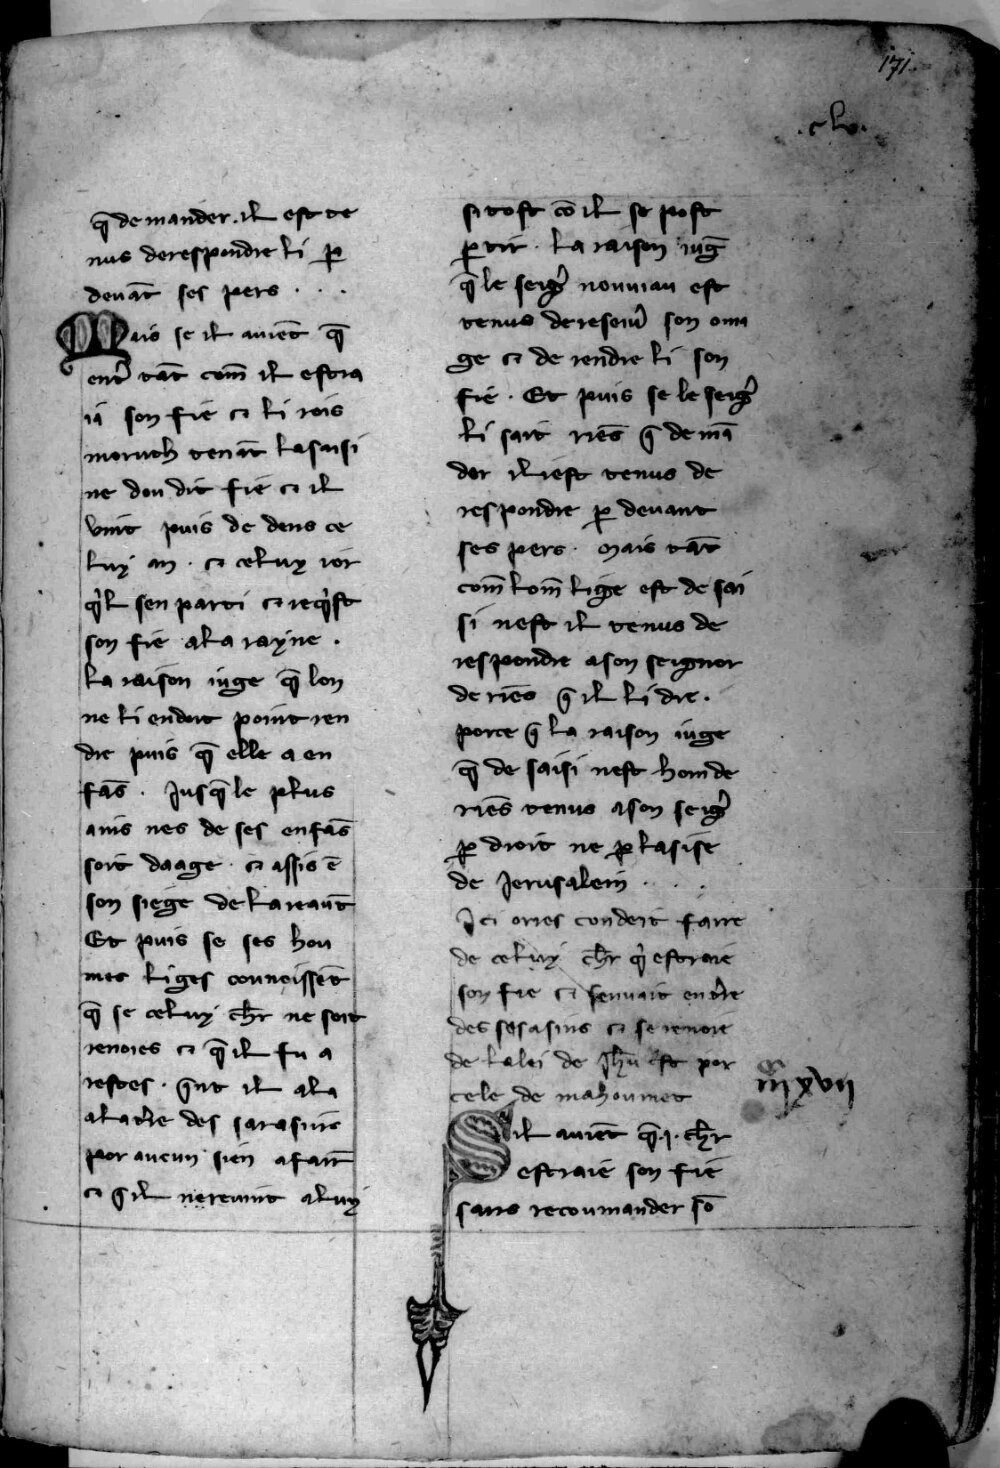 171
.clv.
q̄ demander. il est te
nus derespondre li p̲
deuāt ses pers . . .
Mais se il auiēt q̄
ent᷑ tāt com̄ il estra
ia son fie ⁊ li rois
moruth tenāt lasaisi
ne dou dit fie ⁊ il
vint puis de dens ce
luy an . ⁊ celuy ior
q̓l sen parti ⁊ req̓st
son fie ala rayne .
La raison iuge q̄ lon
ne li endoit point ren
dre puis q̄ elle a en
fās . Jusq̄ le plus
ains nes de ses enfās
soit daage . ⁊ assis ē
son siege delareaut̄
Et puis se ses hou
mes liges connoissēt
q̄ se celuy ch̄r ne soit
renoies ⁊ q̄ il fu a
restes . q̄nt il ala
alat᷑re des sarasins
por aucun sien afaire
⁊ q̄ il nereuint aluy
sitost cō il se post
p̲tir . la raison iuḡ
q̄ le seig᷑ nouuiau est
tenus deresceu᷑ son oma
ge ⁊ de rendre li son
fie . Et puis se le seig᷑
li sait riēs q̄ demā
der il iest tenus de
respondre p̲ deuant
ses pers . mais tāt
com̄ lom̄ lige est de sai
si nest il tenus de
respondre ason seignor
de riēs q̄ il li die .
porce q̄ la raison iuge
q̄ de saisi nest homde
riēs tenus ason seig᷑
p̲ droit ne p̲ lasise
de Jerusalem . . .
Ici ories condeit faire
de celuy ch̄r q̓ estraie
son fie ⁊ senuait en t᷑re
des sarasins ⁊ se renoie
de lalei de Jh̄u c̄st por
cele de mahoumet
m̄ xvii
Sil auiēt q̄ .i. ch̄r
estraie son fie
sans recoumander sō